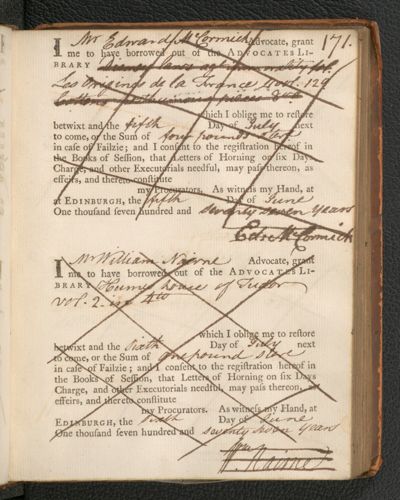 171.
I Mr Edward McCormick Advocate, grant
me to have borrowed out of the ADVOCATES LI-
BRARY
Les Origines de la France
which I oblige me to restore
betwixt and the fifth Day of July next
to come, or the Sum of four pounds
in case of Failzie; and I consent to the registration hereof in
the Books of Session, that Letters of Horning on six Days
Charge, and other Executorials needful, may pass thereon, as
effeirs, and thereto constitute
my Procurators. As witness my Hand, at
at EDINBURGH, the fifth Day of June
One thousand seven hundred and seventy seven Years
Edw McCormick
I Mr William Nairne Advocate, grant
me to have borrowed out of the ADVOCATES LI-
BRARY Humes house of Tudor
vol. 2. in 4to
which I oblige me to restore
betwixt and the sixth Day of July next
to come, or the Sum of one pound
in case of Failzie; and I consent to the registration hereof in
the Books of Session, that Letters of Horning on six Days
Charge, and other Executorials needful, may pass thereon, as
effeirs, and thereto constitute
my Procurators. As witness my Hand, at
EDINBURGH, the sixth Day of June
One thousand seven hundred and seventy seven Years
W. Nairne